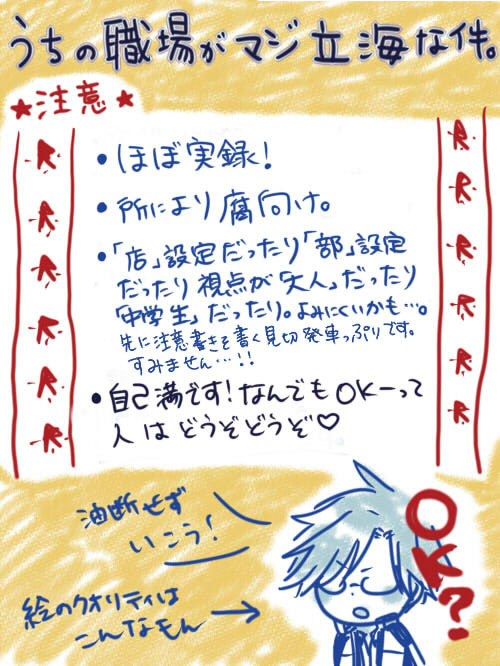 うちの職場がマジ立海な件。
★注意★
R R
R R
R R
R R
R R
R R
•ほぼ実録！
•所により腐向け。
•「店」設定だったり「部」設定
だったり視点が「大人」だったり
「中学生」だったり。よみにくいかも…。
先に注意書きを書く見切発車っぷりです。
すみません…！！
•自己満です！なんでもOKーって
人はどうぞどうぞ♡
油断せず
いこう！
OK？
絵のクオリティは
こんなもん→